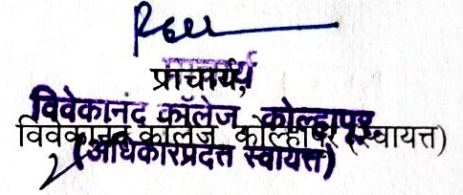 प्राचार्य,
विवेकानंद कॉलेज, कोल्हापूर
विवेकानंद कॉलेज, कोल्हापूर (स्वायत्त)
(अधिकारप्रदत्त स्वायत्त)